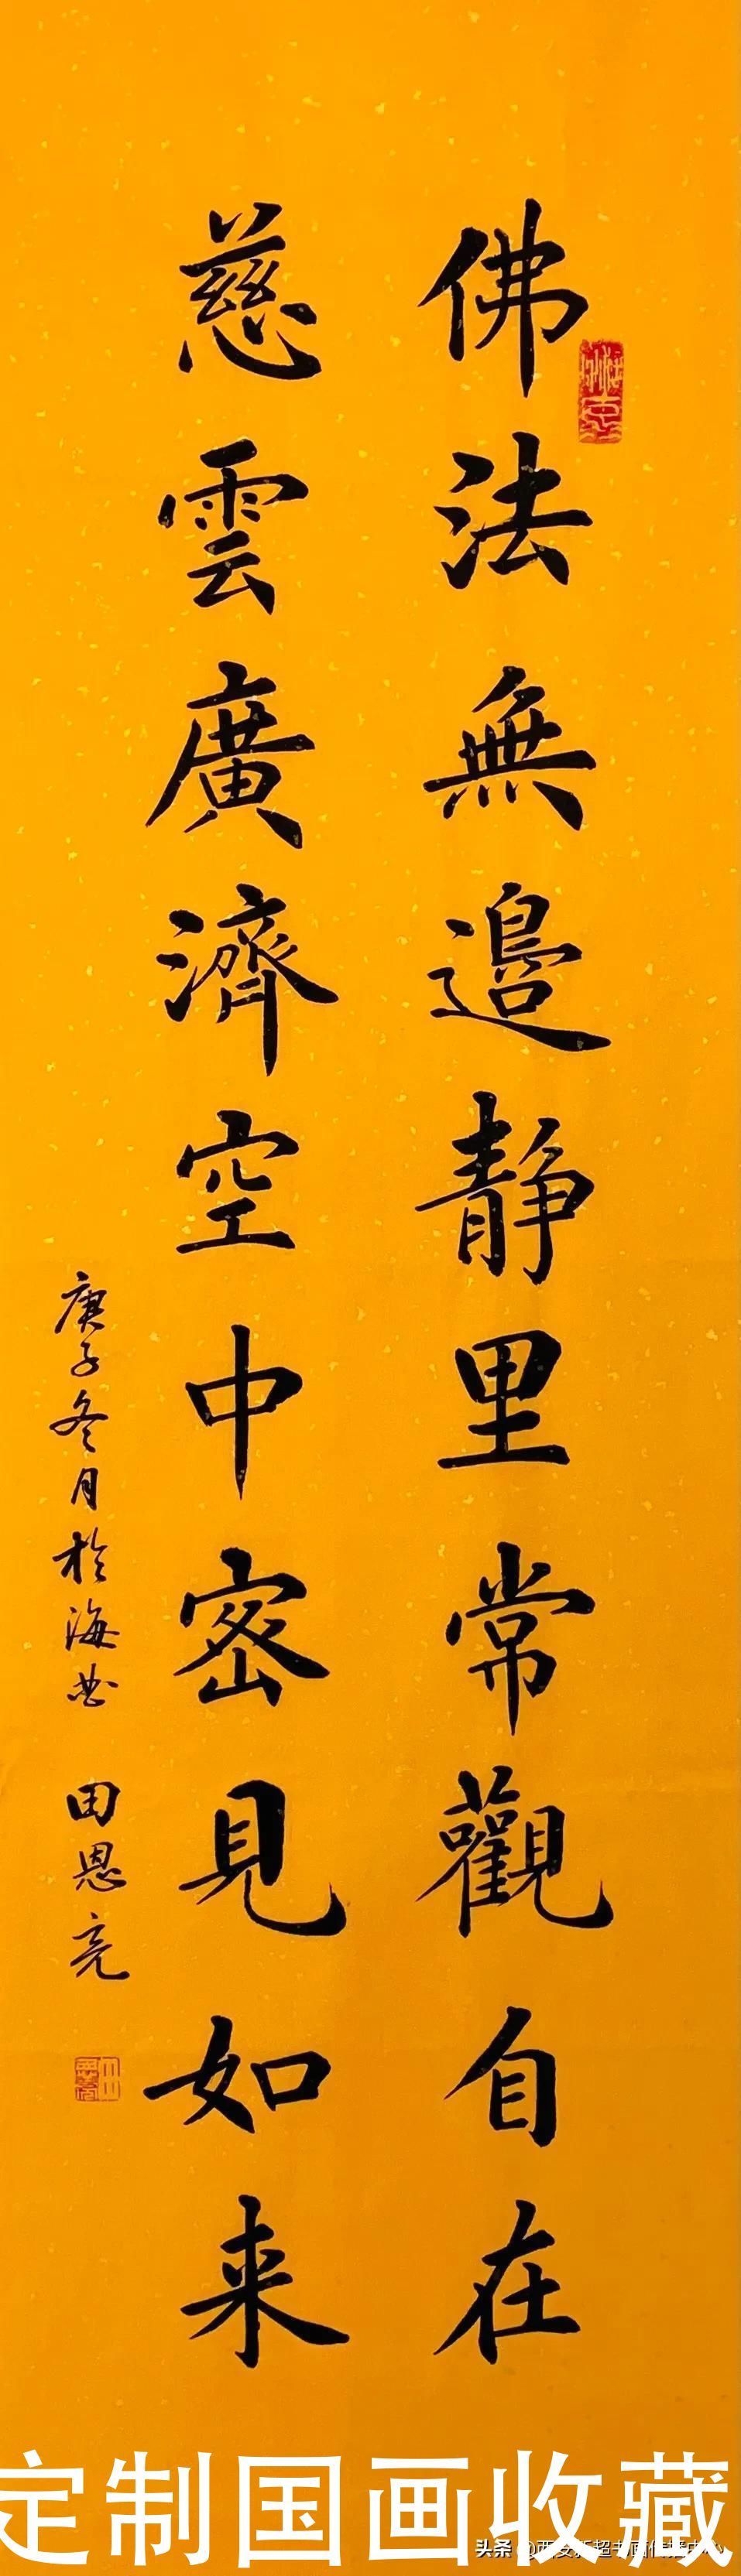 佛法無邊靜里常觀自在
慈雲廣濟空中密見如来
庚子冬月於海
田恩亮
定制国画收藏
头条